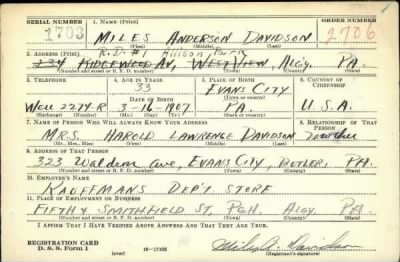 SERIAL NUMBER 1. NAME (Print) ORDER NUMBER
1703 MILES ANDERSON DAVIDSON 2706
(First) (Middle) (Last)
R.D. #1 Allison Park
2. ADDRESS (Print)
234 RIDGEWOOD AV, WEST VIEW, ALGY. PA.
(Number and street or R. F. D. number) (Town) (County) (State)
3. TELEPHONE 4. AGE IN YEARS 5. PLACE OF BIRTH 6. COUNTRY OF CITIZENSHIP
33 EVANS CITY
DATE OF BIRTH (Town or county)
WELL 2274-R 3-16-1907 PA. U.S.A.
(Exchange) (Number) (Mo.) (Day) (Yr.) (State or country)
7. NAME OF PERSON WHO WILL ALWAYS KNOW YOUR ADDRESS 8. RELATIONSHIP OF THAT PERSON
MRS. HAROLD LAWRENCE DAVIDSON mother
(Mr., Mrs., Miss) (First) (Middle) (Last)
9. ADDRESS OF THAT PERSON
323 Waldron ave, EVANS CITY, BUTLER, PA.
(Number and street or R. F. D. number) (Town) (County) (State)
10. EMPLOYER'S NAME
KAUFMANNS DEP'T STORE
11. PLACE OF EMPLOYMENT OR BUSINESS
FIFTH & SMITHFIELD ST, PGH. ALGY. PA.
(Number and street or R. F. D. number) (Town) (County) (State)
I AFFIRM THAT I HAVE VERIFIED ABOVE ANSWERS AND THAT THEY ARE TRUE.
REGISTRATION CARD
D. S. S. Form 1 (over) 16-17105 Miles A. Davidson
(Registrant's signature)